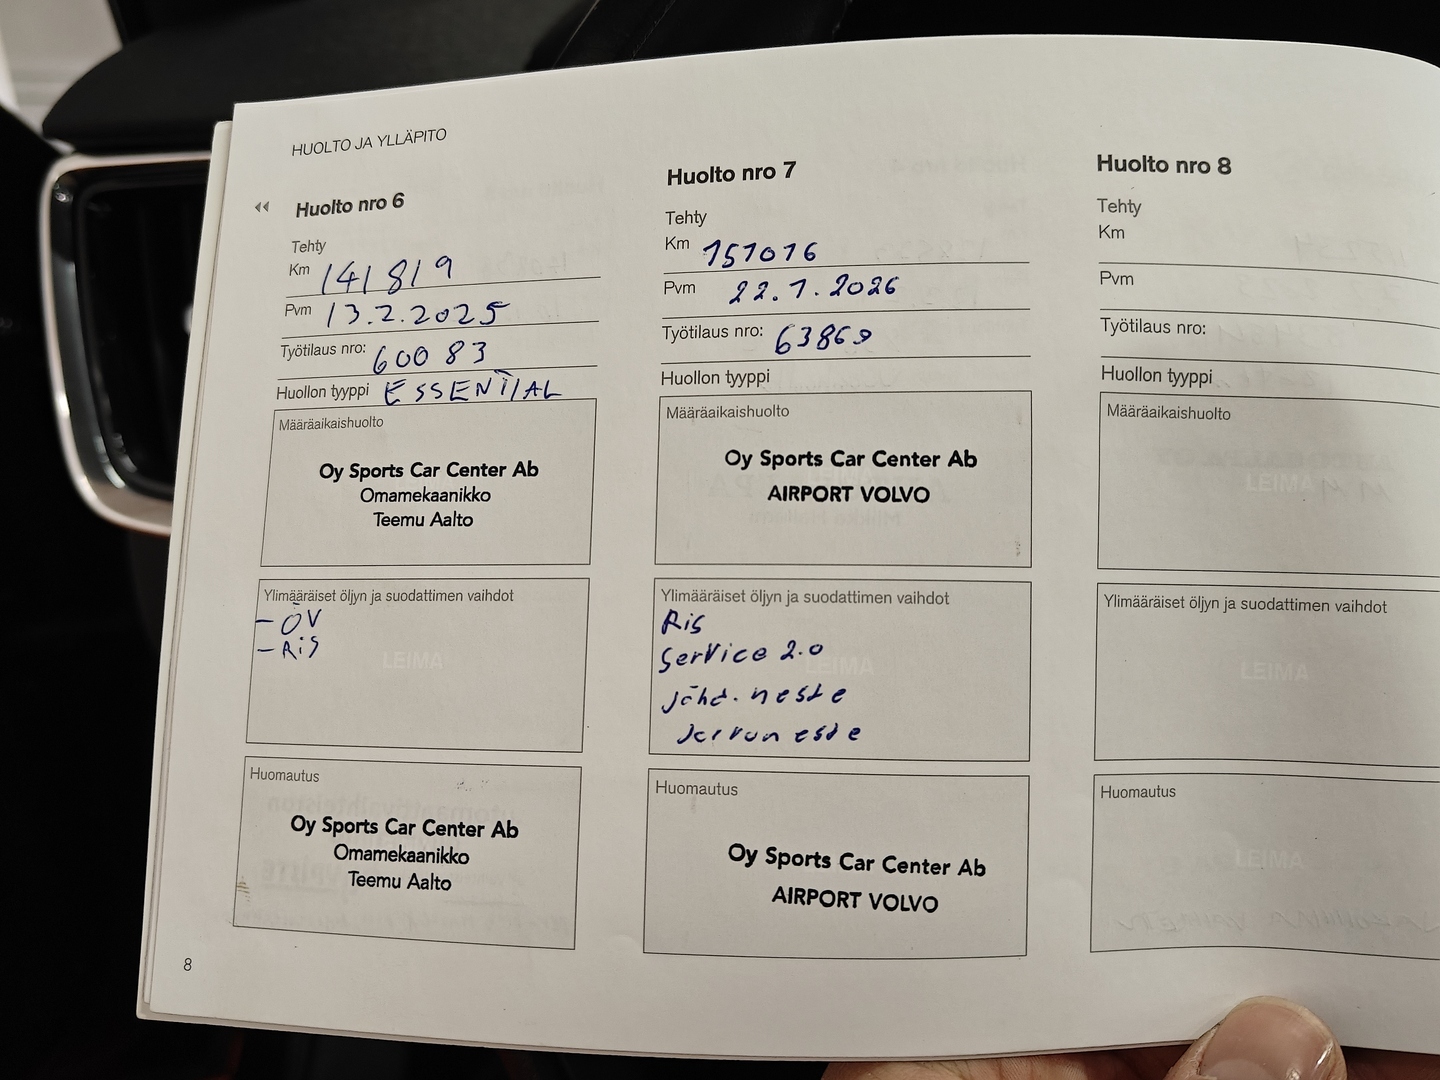 HUOLTO JA YLLÄPITO
Huolto nro 6
Tehty
Km 141819
Pvm 13.2.2025
Työtilaus nro: 60083
Huollon tyyppi ESSENTIAL
Määräaikaishuolto
Oy Sports Car Center Ab
Omamekaanikko
Teemu Aalto
Ylimääräiset öljyn ja suodattimen vaihdot
- ÖV
- RiS
LEIMA
Huomautus
Oy Sports Car Center Ab
Omamekaanikko
Teemu Aalto
8
Huolto nro 7
Tehty
Km 151016
Pvm 22.1.2026
Työtilaus nro: 63869
Huollon tyyppi
Määräaikaishuolto
Oy Sports Car Center Ab
AIRPORT VOLVO
Ylimääräiset öljyn ja suodattimen vaihdot
Ris
Service 2.0
LEIMA
Jähd. neste
Jarruneste
Huomautus
Oy Sports Car Center Ab
AIRPORT VOLVO
Huolto nro 8
Tehty
Km
Pvm
Työtilaus nro:
Huollon tyyppi
Määräaikaishuolto
LEIMA
Ylimääräiset öljyn ja suodattimen vaihdot
LEIMA
Huomautus
LEIMA